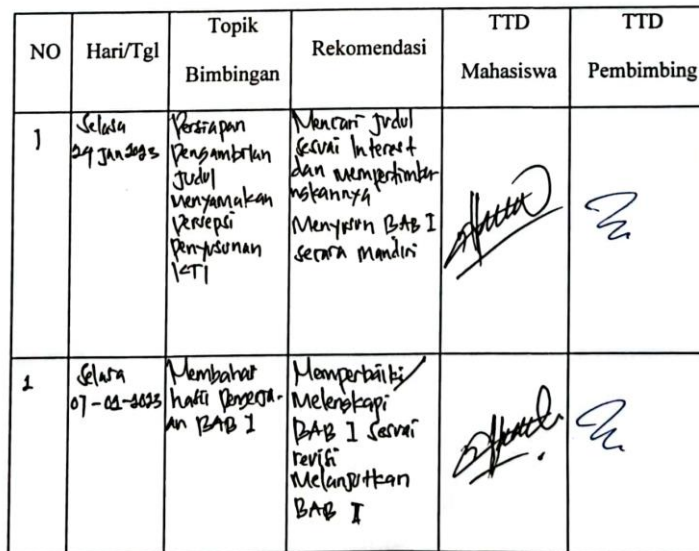 NO
Hari/Tgl
Topik
Bimbingan
Rekomendasi
TTD
Mahasiswa
TTD
Pembimbing
1
Selasa
24 Jan 2023
Persiapan
Pengambilan
Judul
Menyamakan
Persepsi
Penyusunan
KTI
Mencari Judul
sesuai Interest
dan mempertimba
ngkannya
Menyusun BAB I
secara mandiri
2
Selasa
07-02-2023
Membahas
hasil Pengerja-
an BAB I
Memperbaiki/
Melengkapi
BAB I sesuai
revisi
Melanjutkan
BAB